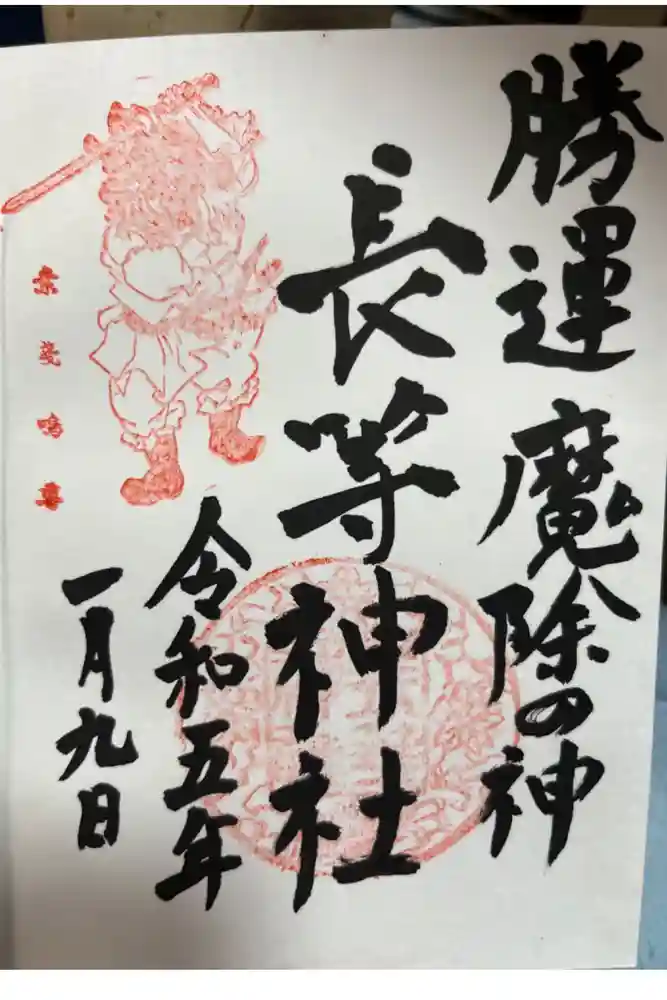 勝運 魔除の神
長等神社
令和五年
一月九日
素盞嗚尊